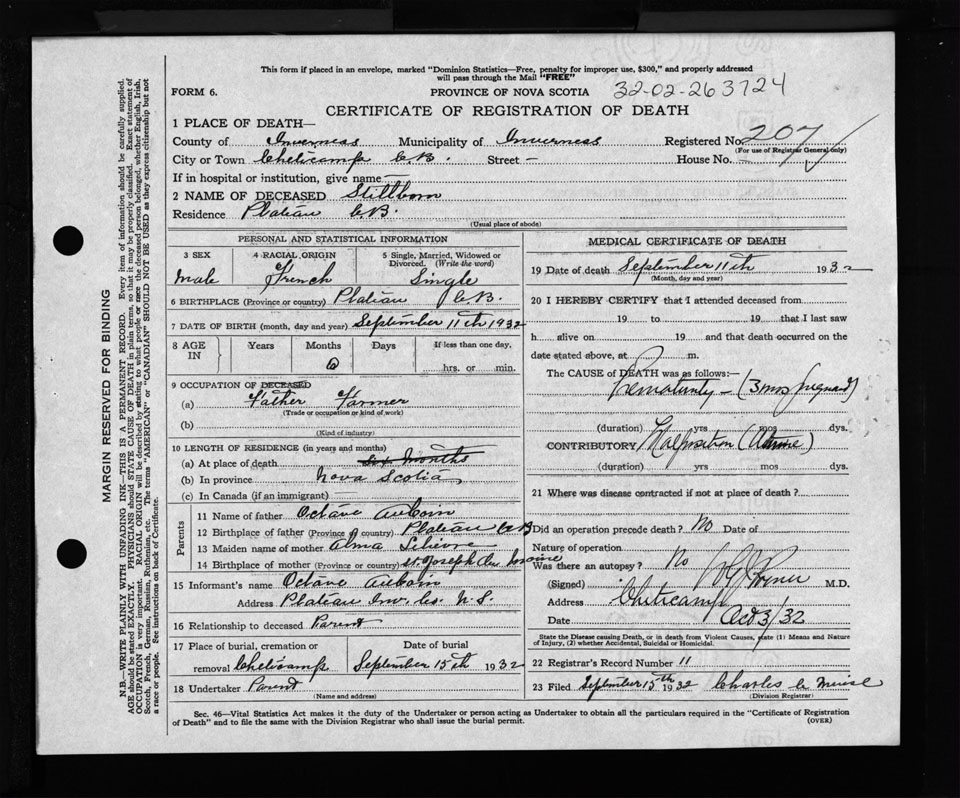 This form if placed in an envelope, marked "Dominion Statistics—Free, penalty for improper use, $300," and properly addressed
will pass through the Mail "FREE"
FORM 6. PROVINCE OF NOVA SCOTIA 32-02-263724
CERTIFICATE OF REGISTRATION OF DEATH
1 PLACE OF DEATH—
County of Inverness Municipality of Inverness Registered No. 207
(For use of Registrar General only)
City or Town Cheticamp C.B. Street - House No. —
If in hospital or institution, give name —
2 NAME OF DECEASED Stillborn
Residence Plateau C.B.
(Usual place of abode)
PERSONAL AND STATISTICAL INFORMATION
3 SEX 4 RACIAL ORIGIN 5 Single, Married, Widowed or
Divorced. (Write the word)
Male French Single
6 BIRTHPLACE (Province or country) Plateau C.B.
7 DATE OF BIRTH (month, day and year) September 11th 1932
8 AGE IN Years Months Days If less than one day,
6
hrs. or min.
9 OCCUPATION OF DECEASED
(a) Father Farmer
(Trade or occupation or kind of work)
(b)
(Kind of industry)
10 LENGTH OF RESIDENCE (in years and months)
(a) At place of death six months
(b) In province Nova Scotia
(c) In Canada (if an immigrant)
Parents
11 Name of father Octave Aucoin
12 Birthplace of father (Province or country) Plateau C.B
13 Maiden name of mother Alma
14 Birthplace of mother (Province or country) St Joseph Du Moine
15 Informant's name Octave Aucoin
Address Plateau Inv. Co. N.S.
16 Relationship to deceased Parent
17 Place of burial, cremation or Date of burial
removal Cheticamp September 15th 1932
18 Undertaker Parent
(Name and address)
MEDICAL CERTIFICATE OF DEATH
19 Date of death September 11th 1932
(Month, day and year)
20 I HEREBY CERTIFY that I attended deceased from
19 to 19 that I last saw
h alive on 19 and that death occurred on the
date stated above, at m.
The CAUSE of DEATH was as follows:—
Prematurity — (3 mos
(duration) yrs mos dys.
CONTRIBUTORY Malposition (
(duration) yrs mos dys.
21 Where was disease contracted if not at place of death?
Did an operation precede death? No Date of
Nature of operation
Was there an autopsy? No
(Signed) M.D.
Address Cheticamp
Date Oct 3/32
State the Disease causing Death, or in death from Violent Causes, state (1) Means and Nature
of Injury, (2) whether Accidental, Suicidal or Homicidal.
22 Registrar's Record Number 11
23 Filed September 15th 1932 Charles
(Division Registrar)
Sec. 46—Vital Statistics Act makes it the duty of the Undertaker or person acting as Undertaker to obtain all the particulars required in the "Certificate of Registration
of Death" and to file the same with the Division Registrar who shall issue the burial permit. (OVER)
MARGIN RESERVED FOR BINDING
N.B.—WRITE PLAINLY WITH UNFADING INK—THIS IS A PERMANENT RECORD. Every item of information should be carefully supplied.
AGE should be stated EXACTLY. PHYSICIANS should STATE CAUSE OF DEATH in plain terms, so that it may be properly classified. Exact statement of
OCCUPATION is very important. RACIAL ORIGIN will be described by stating to what people or race the deceased person belonged, whether English, Irish,
Scotch, French, German, Russian, Ruthenian, etc. The terms "AMERICAN" or "CANADIAN" SHOULD NOT BE USED as they express citizenship but not
a race or people. See instructions on back of Certificate.